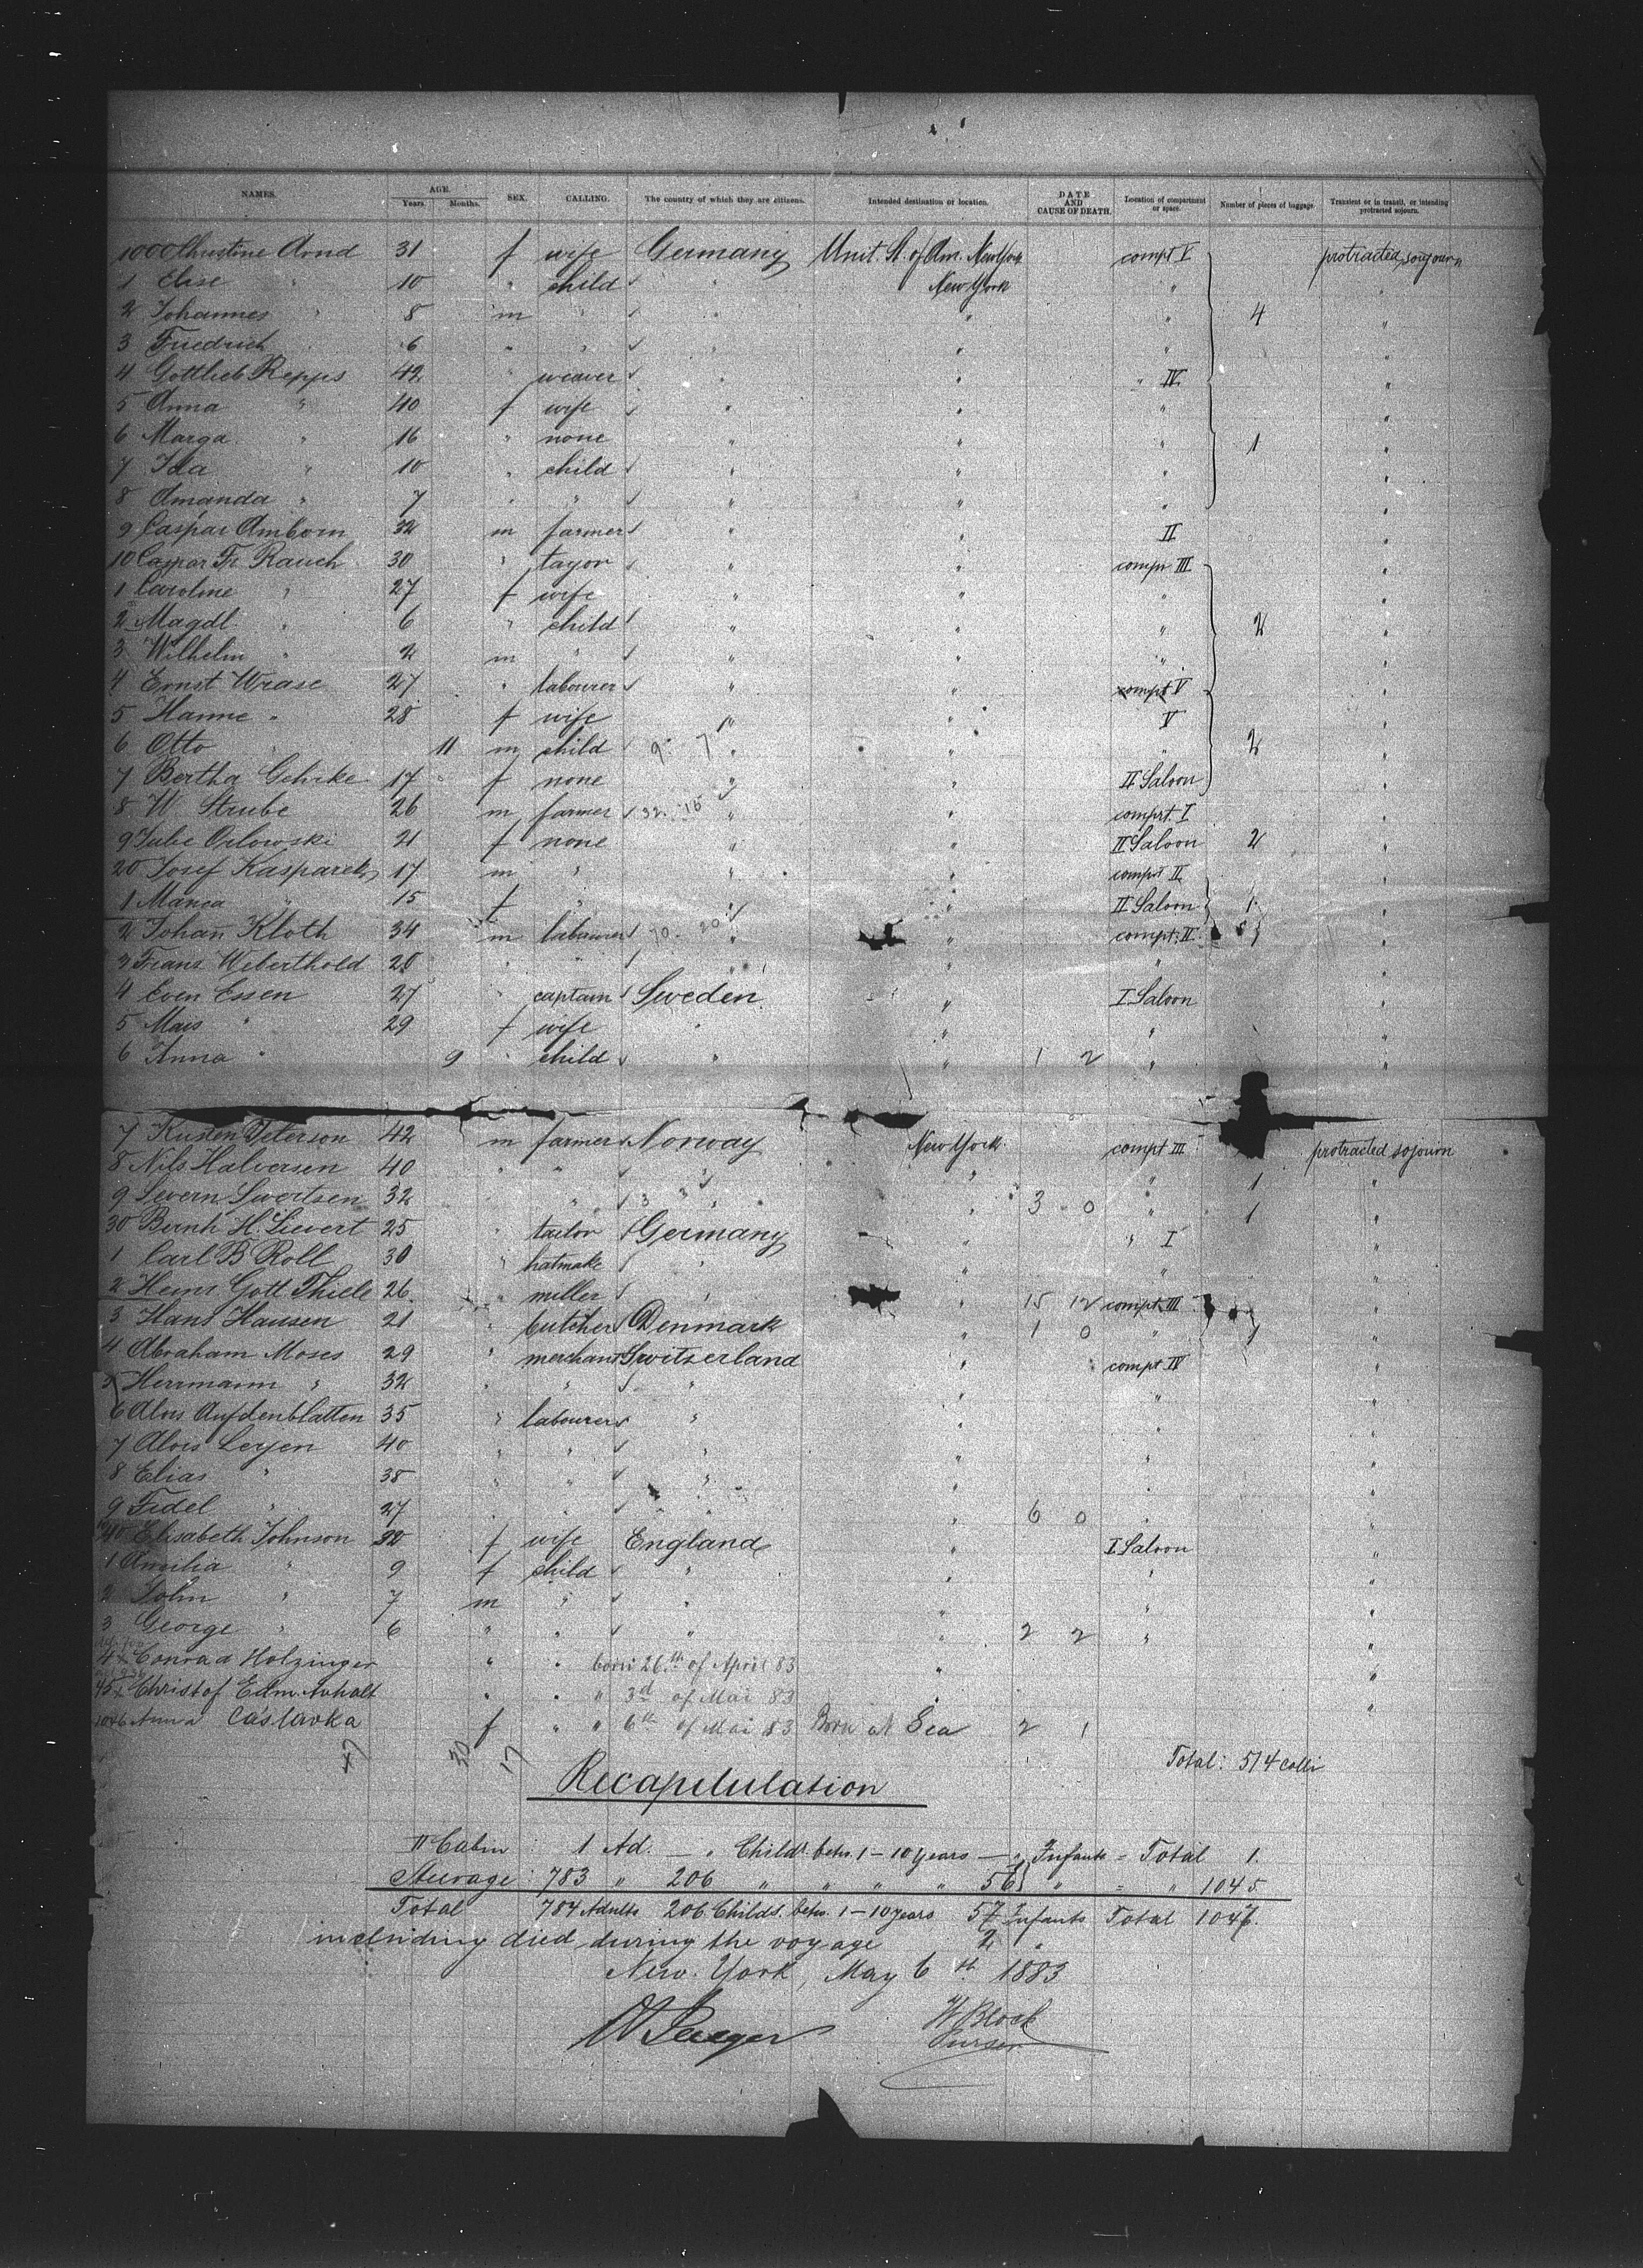 NAMES. AGE. Years. Months. SEX. CALLING. The country of which they are citizens. Intended destination or location. DATE AND CAUSE OF DEATH. Location of compartment or space. Number of pieces of baggage. Transient or in transit, or intending protracted sojourn.
1000 Christine Arnd 31 f wife Germany Unit. St. of Am. New York compt V protracted sojourn
1 Elise " 10 " child " New York "
2 Johannes " 8 m " " " " 4 "
3 Friedrich " 6 " " " " " "
4 Gottlieb Repps 42 " weaver " " " IV "
5 Anna " 40 f wife " " " "
6 Marga " 16 " none " " " 1 "
7 Ida " 10 " child " " " "
8 Amanda " 7 " " " " " "
9 Caspar Amborn 32 m farmer " " II "
10 Caspar Fr. Rauch 30 " taylor " " compt III "
1 Caroline " 27 f wife " " " "
2 Magdl. " 6 " child " " " 2 "
3 Wilhelm " 2 m " " " " "
4 Ernst Wrase 27 " labourer " " compt V "
5 Hanne " 28 f wife " " V "
6 Otto 11 m child 9 7 " " " 2 "
7 Bertha Gehrke 17 f none " " II Saloon "
8 W. Strube 26 m farmer 32 15 " " comprt. I
9 Julie Orlowski 21 f none " " II Saloon 2 "
20 Josef Kasparek 17 m " " " compt II "
1 Manca " 15 f " " " II Saloon 1 "
2 Johan̅ Kloth 34 m labourer 70 20 " " compt. II "
3 Franz Weberthold 28 " " " " " "
4 Even Essen 27 " captain Sweden " I Saloon "
5 Mais " 29 f wife " " " "
6 Anna " 9 " child " " 1 2 " "
7 Kristen Peterson 42 m farmer Norway New York compt III protracted sojourn
8 Nils Halversen 40 " " " " " 1 "
9 Severn Swertsen 32 " 3 3 " " 3 0 " 1 "
30 Bernh. H. Sievert 25 " tailor Germany " " I "
1 Carl B Roll 30 " hatmake " " " "
2 Heinr Gott Thiele 26 " miller " " 15 12 compt III "
3 Hans Hansen 21 " butcher Denmark " 1 0 " 1 "
4 Abraham Moses 29 " merchant Switzerland " compt IV "
5 Herrmann " 32 " " " " " "
6 Alois Aufdenblatten 35 " labourer " " " "
7 Alois Lerjen 40 " " " " " "
8 Elias " 38 " " " " " "
9 Fidel " 27 " " " " 6 0 " "
40 Elisabeth Johnson 32 f wife England " I Saloon "
1 Amilia " 9 f child " " " "
2 John " 7 m " " " " "
3 George " 6 " " " " 2 2 " "
4 Conrad Holzinger " " born 26th of April 83 " "
45 Christof Edm. Anhalt " " " 3d of Mai 83 "
1046 Anna Caslavka f " " 6th of Mai 83 Born at Sea 2 1
47 30 17 Total: 514 colli
Recapitulation
II Cabin : 1 Ad. — " Childr. betw. 1-10 years — " Infants = Total 1.
Steerage : 783 " 206 " " " " 56 " = " 1045
Total 784 Adults 206 Childs. betw. 1-10 years 57 Infants Total 1047.
including died during the voyage 2 "
New York, May 6th 1883
W Block
Purser